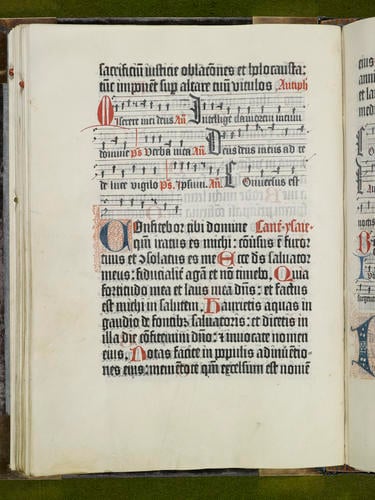 sacrificiū iusticie oblac̄ones et holocausta:
tūc imponēt sup altare tuū vitulos. Antiph
Miserere mei deus Añ. Intellige clamorem meum
domine ps Verba mea Añ. Deus deus meus ad te
de luce vigilo ps. ipsum. Añ. Conuersus est
Confitebor tibi domine Cant. ysaie.
qm̄ iratus es michi: cōuersus ē furor
tuus et ꝯsolatus es me Ecce dn̄s saluator
meus: fiducialit̄ agā et nō timebo. Quia
fortitudo mea et laus mea dn̄s: et factus
est michi in salutem. Haurietis aquas in
gaudio de fontib; saluatoris: et dicetis in
illa die cōfitemini dn̄o: ⁊ inuocate nomen
eius. Notas facite in populis adinuētio-
nes eius: mementote qm̄ excelsum est nomē